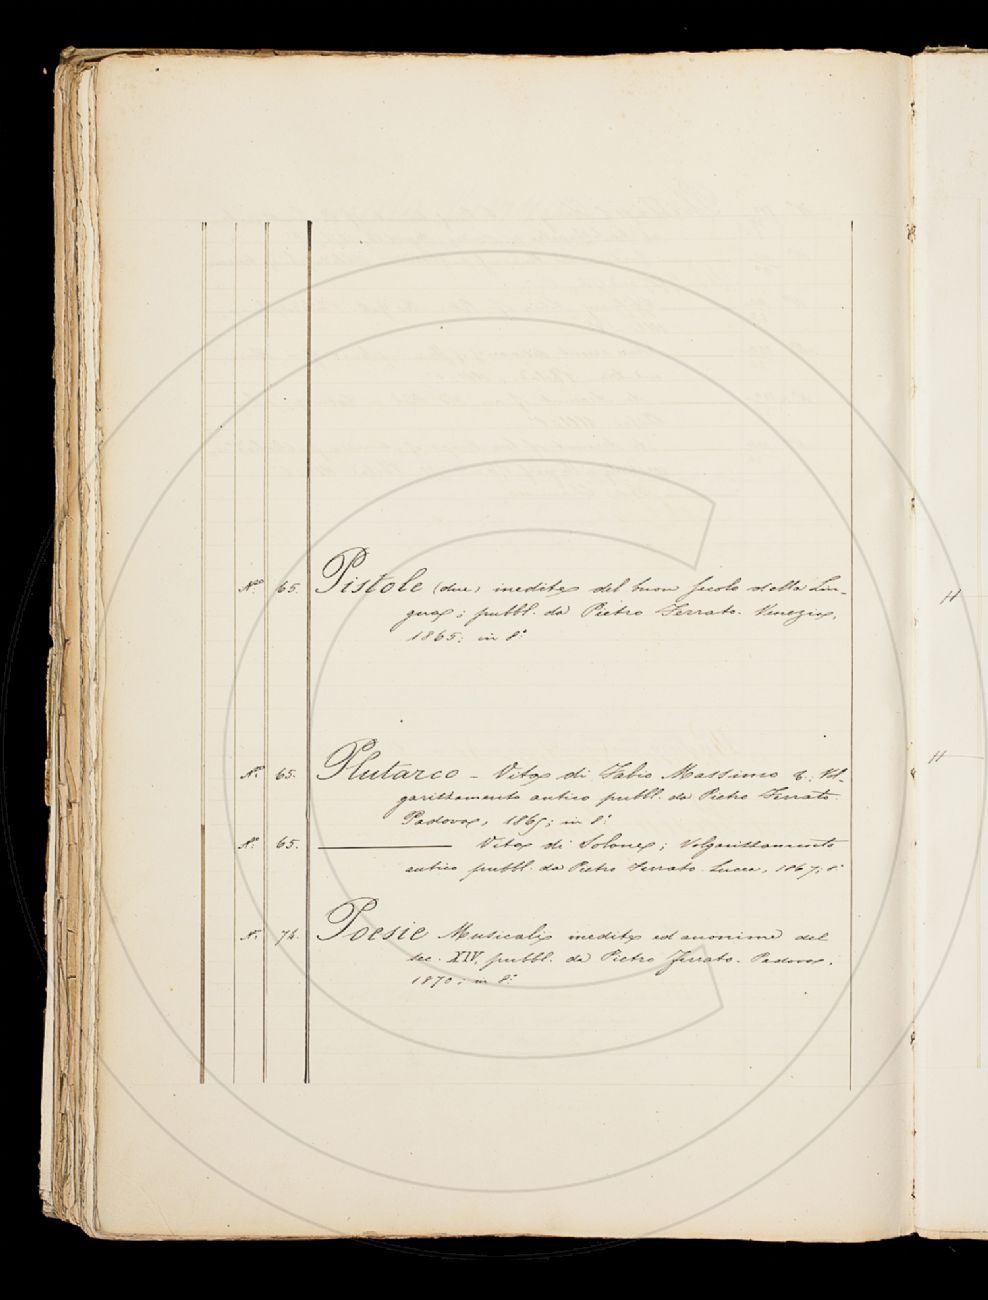 N.° 65. Pistole (due) inedite del buon secolo della Lin-
gua; pubbl. da Pietro Ferrato. Venezia,
1865; in 8.°
N.° 65. Plutarco – Vita di Fabio Massimo &. Vol-
garizzamento antico pubbl. da Pietro Ferrato.
Padova, 1869; in 8.°
N.° 65. ——— Vita di Solone; Volgarizzamento
antico pubbl. da Pietro Ferrato. Lucca, 1867; 8.°
N.° 74. Poesie Musicali inedite ed anonime del
sec. XIV, pubbl. da Pietro Ferrato. Padova,
1870; in 8.°
H
H